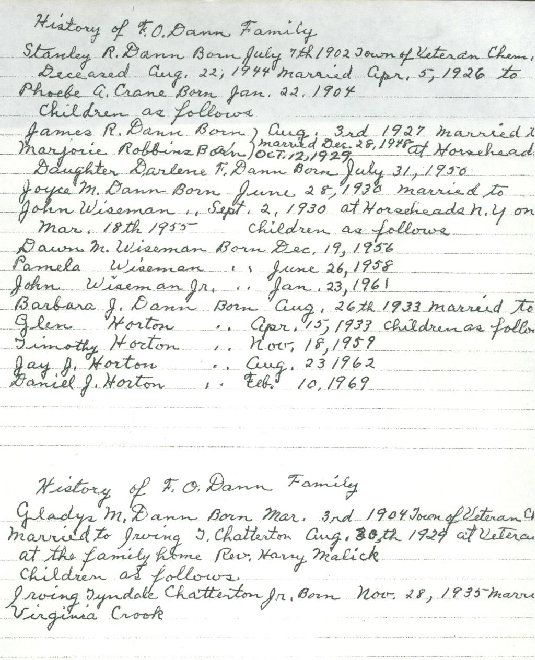 History of F.O. Dann Family
Stanley R. Dann Born July 7th 1902 Town of Veteran Chem.
Deceased Aug. 22, 1944 Married Apr. 5, 1926 to
Phoebe A. Crane Born Jan. 22. 1904
Children as follows
James R. Dann Born Aug. 3rd 1927 Married t
Marjorie Robbins Born Oct. 12, 1929 Married Dec. 28, 1948 at Horsehead
Daughter Darlene F. Dann Born July 31, 1950
Joyce M. Dann Born June 28, 1930 married to
John Wiseman ,, Sept. 2, 1930 at Horseheads N.Y on
Mar. 18th 1955 Children as follows
Dawn M. Wiseman Born Dec. 19, 1956
Pamela Wiseman ,, June 26, 1958
John Wiseman Jr. ,, Jan. 23, 1961
Barbara J. Dann Born Aug. 26th 1933 Married to
Glen Horton ,, Apr. 15, 1933 Children as follow
Timothy Horton ,, Nov, 18, 1959
Jay J. Horton ,, Aug. 23 1962
Daniel J. Horton ,, Feb. 10, 1969
History of F. O. Dann Family
Gladys M. Dann Born Mar. 3rd 1904 Town of Veteran Ch
Married to Irving T. Chatterton Aug. 30th 1924 at Vetera
at the family home Rev. Harry Malick
Children as follows.
Irving Tyndale Chatterton Jr. Born Nov. 28, 1935 Marri
Virginia Crook